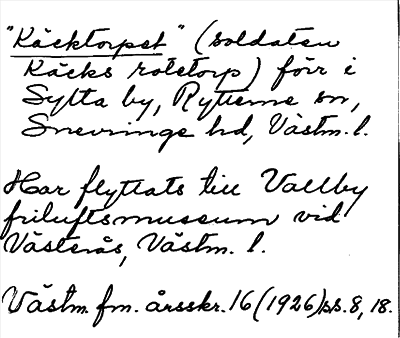 "Käcktorpet" (soldaten
Käcks rotetorp) förr i
Sylta by, Rytterne sn,
Snevringe hd, Västm. l.
Har flyttats till Vallby
friluftsmuseum vid
Västerås, Västm. l.
Västm. fm. årsskr. 16 (1926) ss. 8, 18.